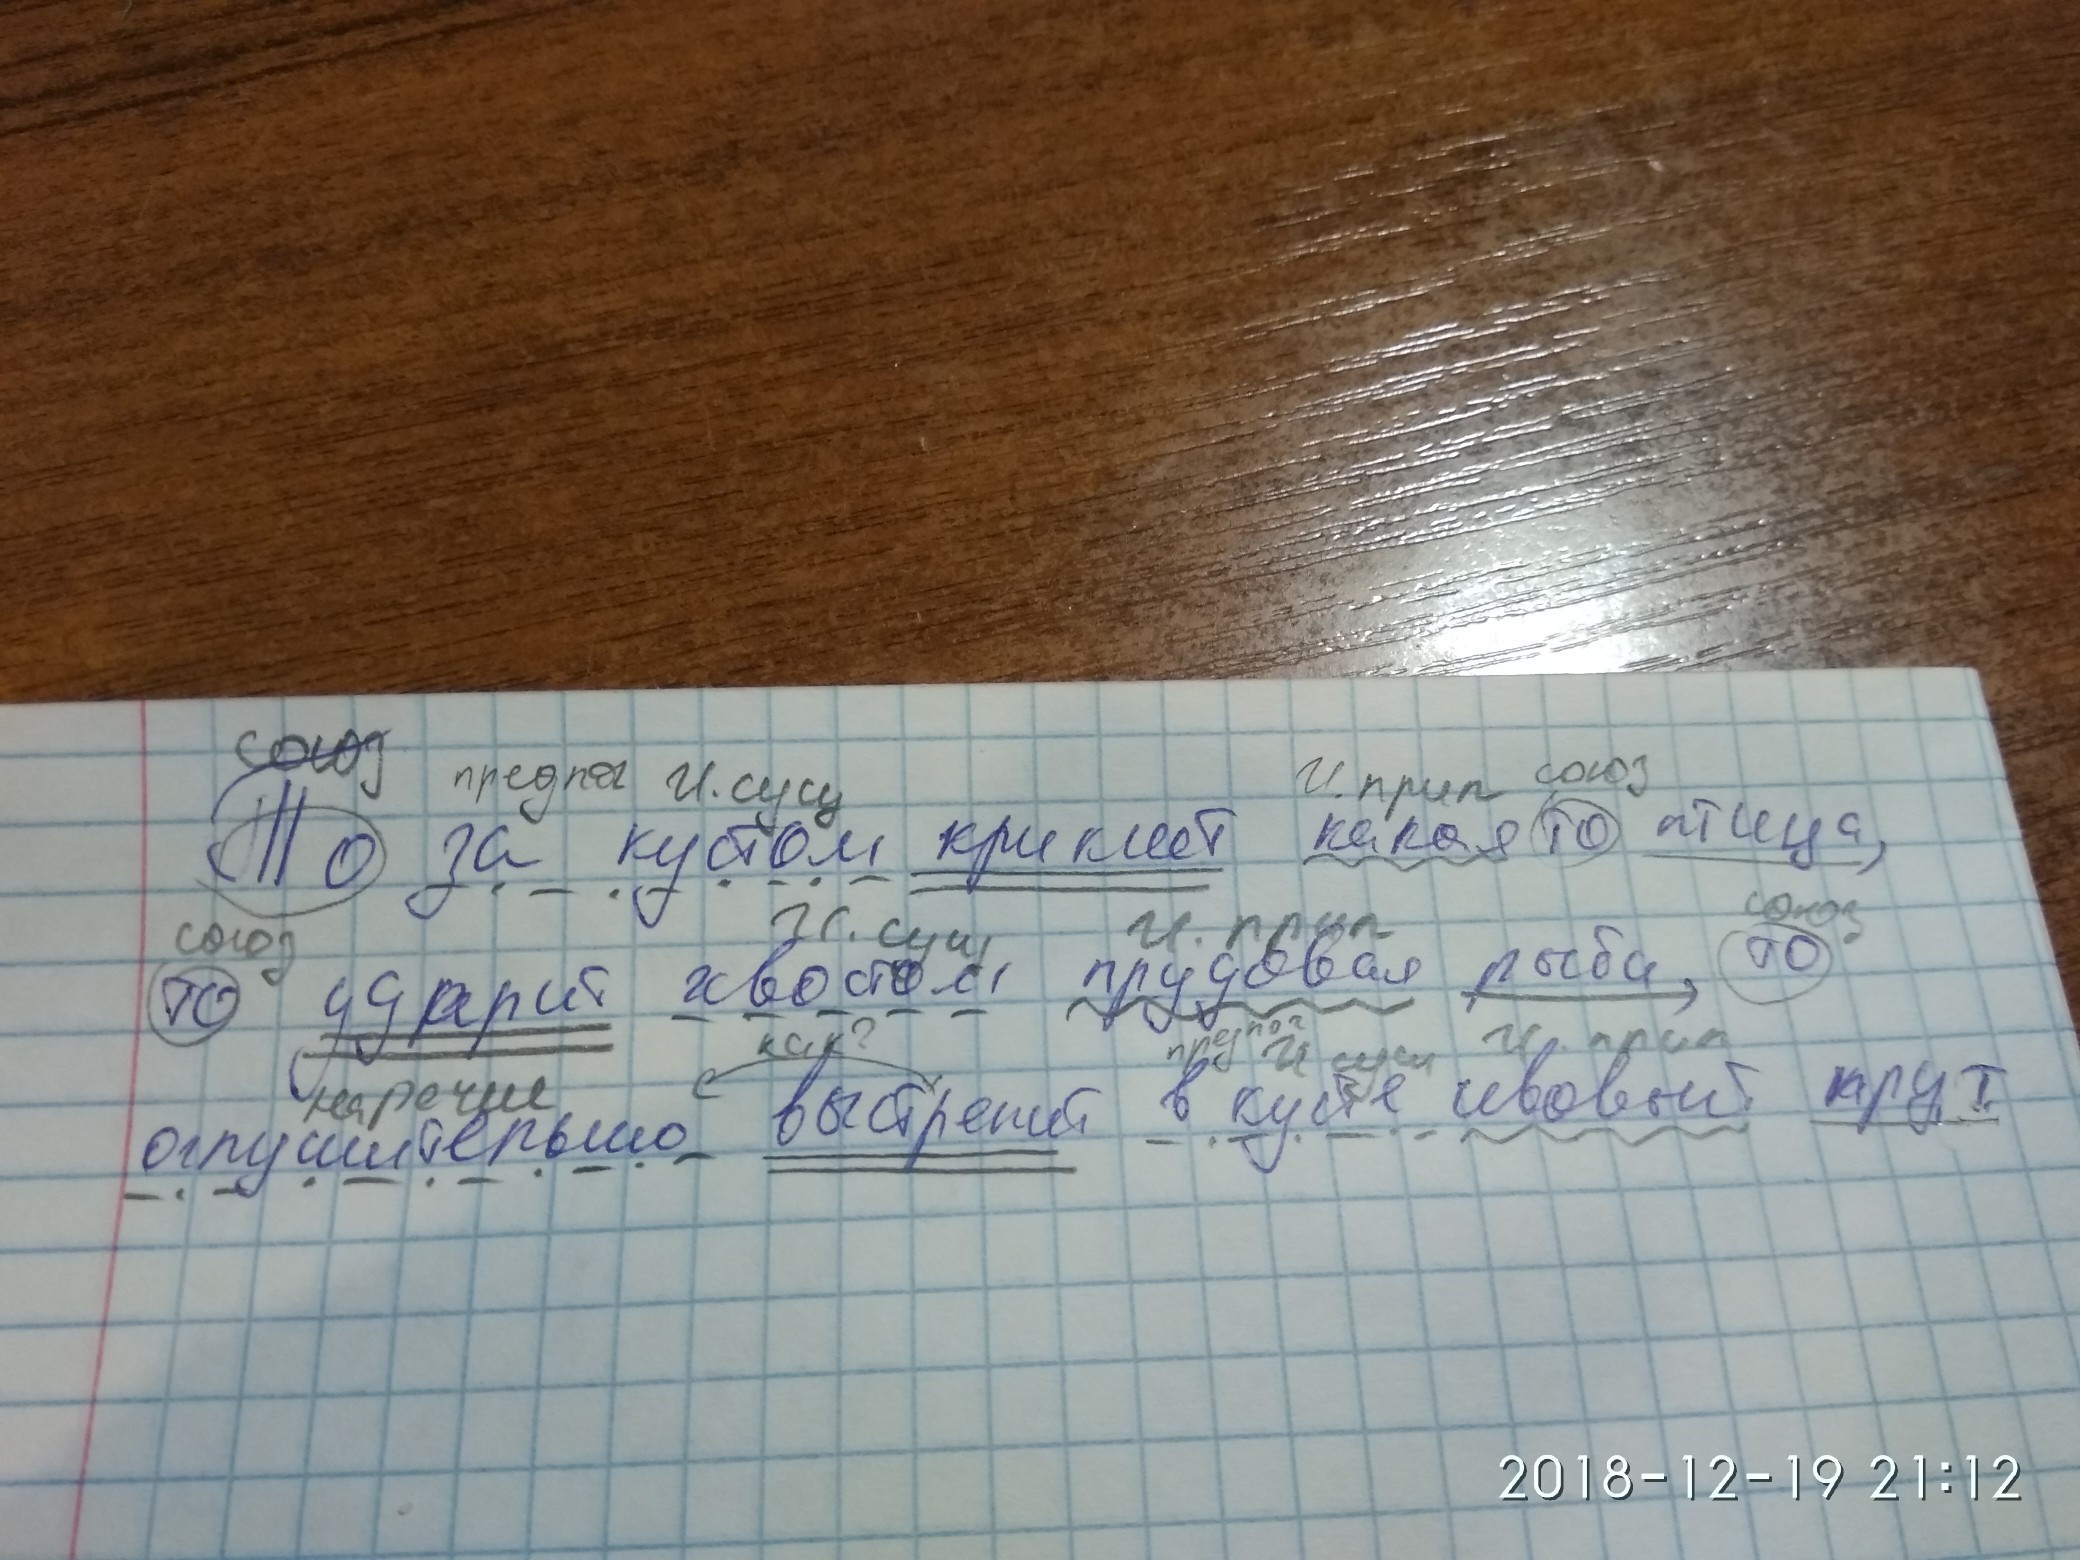 союз
предлог И. сущ И. прил союз
То за кустом крикнет какая то птица,
союз И. сущ И. прил союз
то ударит хвостом прудовая рыба, то
как? предлог И сущ И. прил
наречие
оглушительно выстрелит в кусте ивовый прут.
2018-12-19 21:12